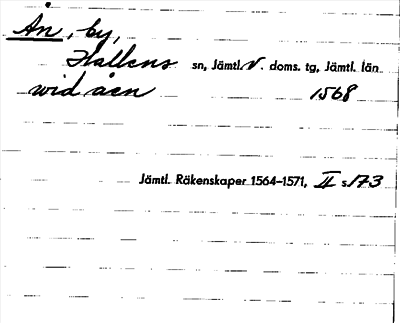 Ån, by,
Hallens sn, Jämtl. V. doms. tg, Jämtl. län
wid åen 1568
Jämtl. Räkenskaper 1564–1571, II s. 173